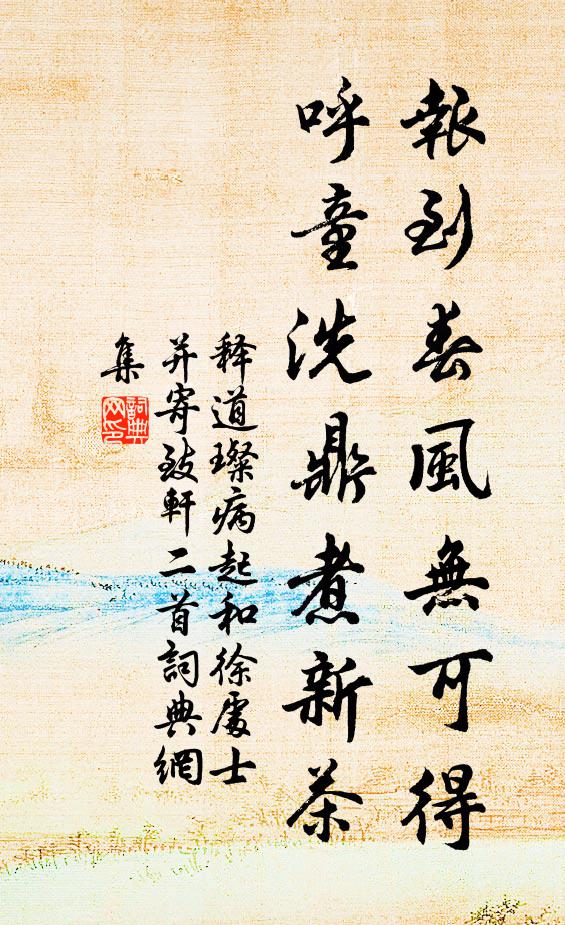 報到春風無可得
呼童洗鼎煮新茶
释道璨病起和徐處士
并寄致軒二首詞典網
集
詞典
网印